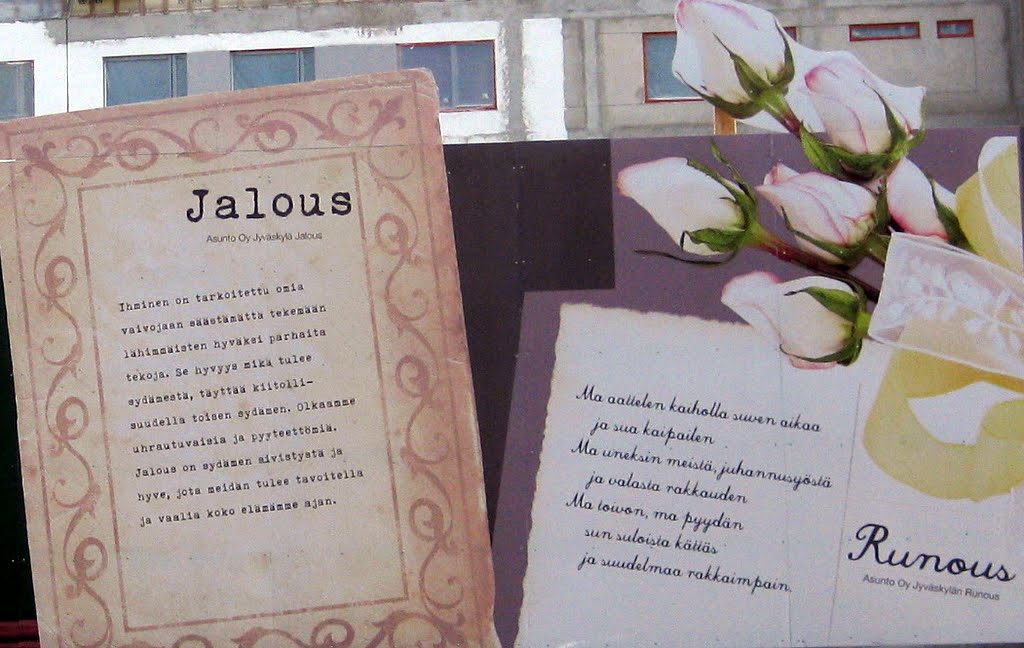 Jalous
Asunto Oy Jyväskylä Jalous
Ihminen on tarkoitettu omia
vaivojaan säästämättä tekemään
lähimmäisten hyväksi parhaita
tekoja. Se hyvyys mikä tulee
sydämestä, täyttää kiitolli-
suudella toisen sydämen. Olkaamme
uhrautuvaisia ja pyyteettömiä.
Jalous on sydämen sivistystä ja
hyve, jota meidän tulee tavoitella
ja vaalia koko elämämme ajan.
Ma aattelen kaiholla suven aikaa
ja sua kaipailen
Ma uneksin meistä, juhannusyöstä
ja valasta rakkauden
Ma toivon, ma pyydän
sun suloista kättäs
ja suudelmaa rakkaimpain.
Runous
Asunto Oy Jyväskylän Runous